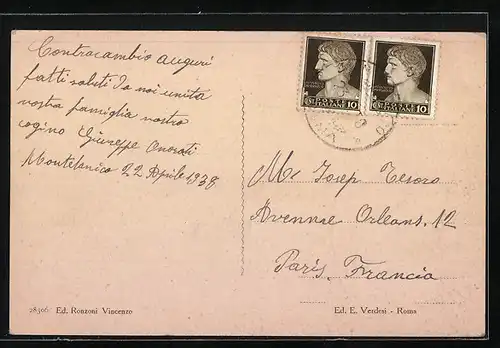 Contracambio auguri
fatti saluti Da noi unita
vostra famiglia vostro
cogino Giuseppe Onorati
Montelanico 22 Aprile 1938
POSTE
ITALIANE
10
POSTE
ITALIANE
10
Mr Josep Tesoro
Avennue Orleans. 12
Paris. Francia
28506 Ed. Ronzoni Vincenzo
Ed. E. Verdesi - Roma